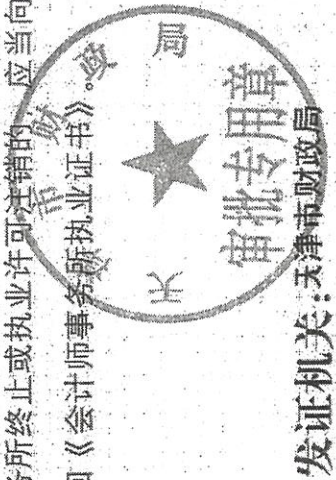 务所终止或执业许可注销的，应当向
《会计师事务所执业证书》。
天津市财政局
审批专用章
发证机关：天津市财政局